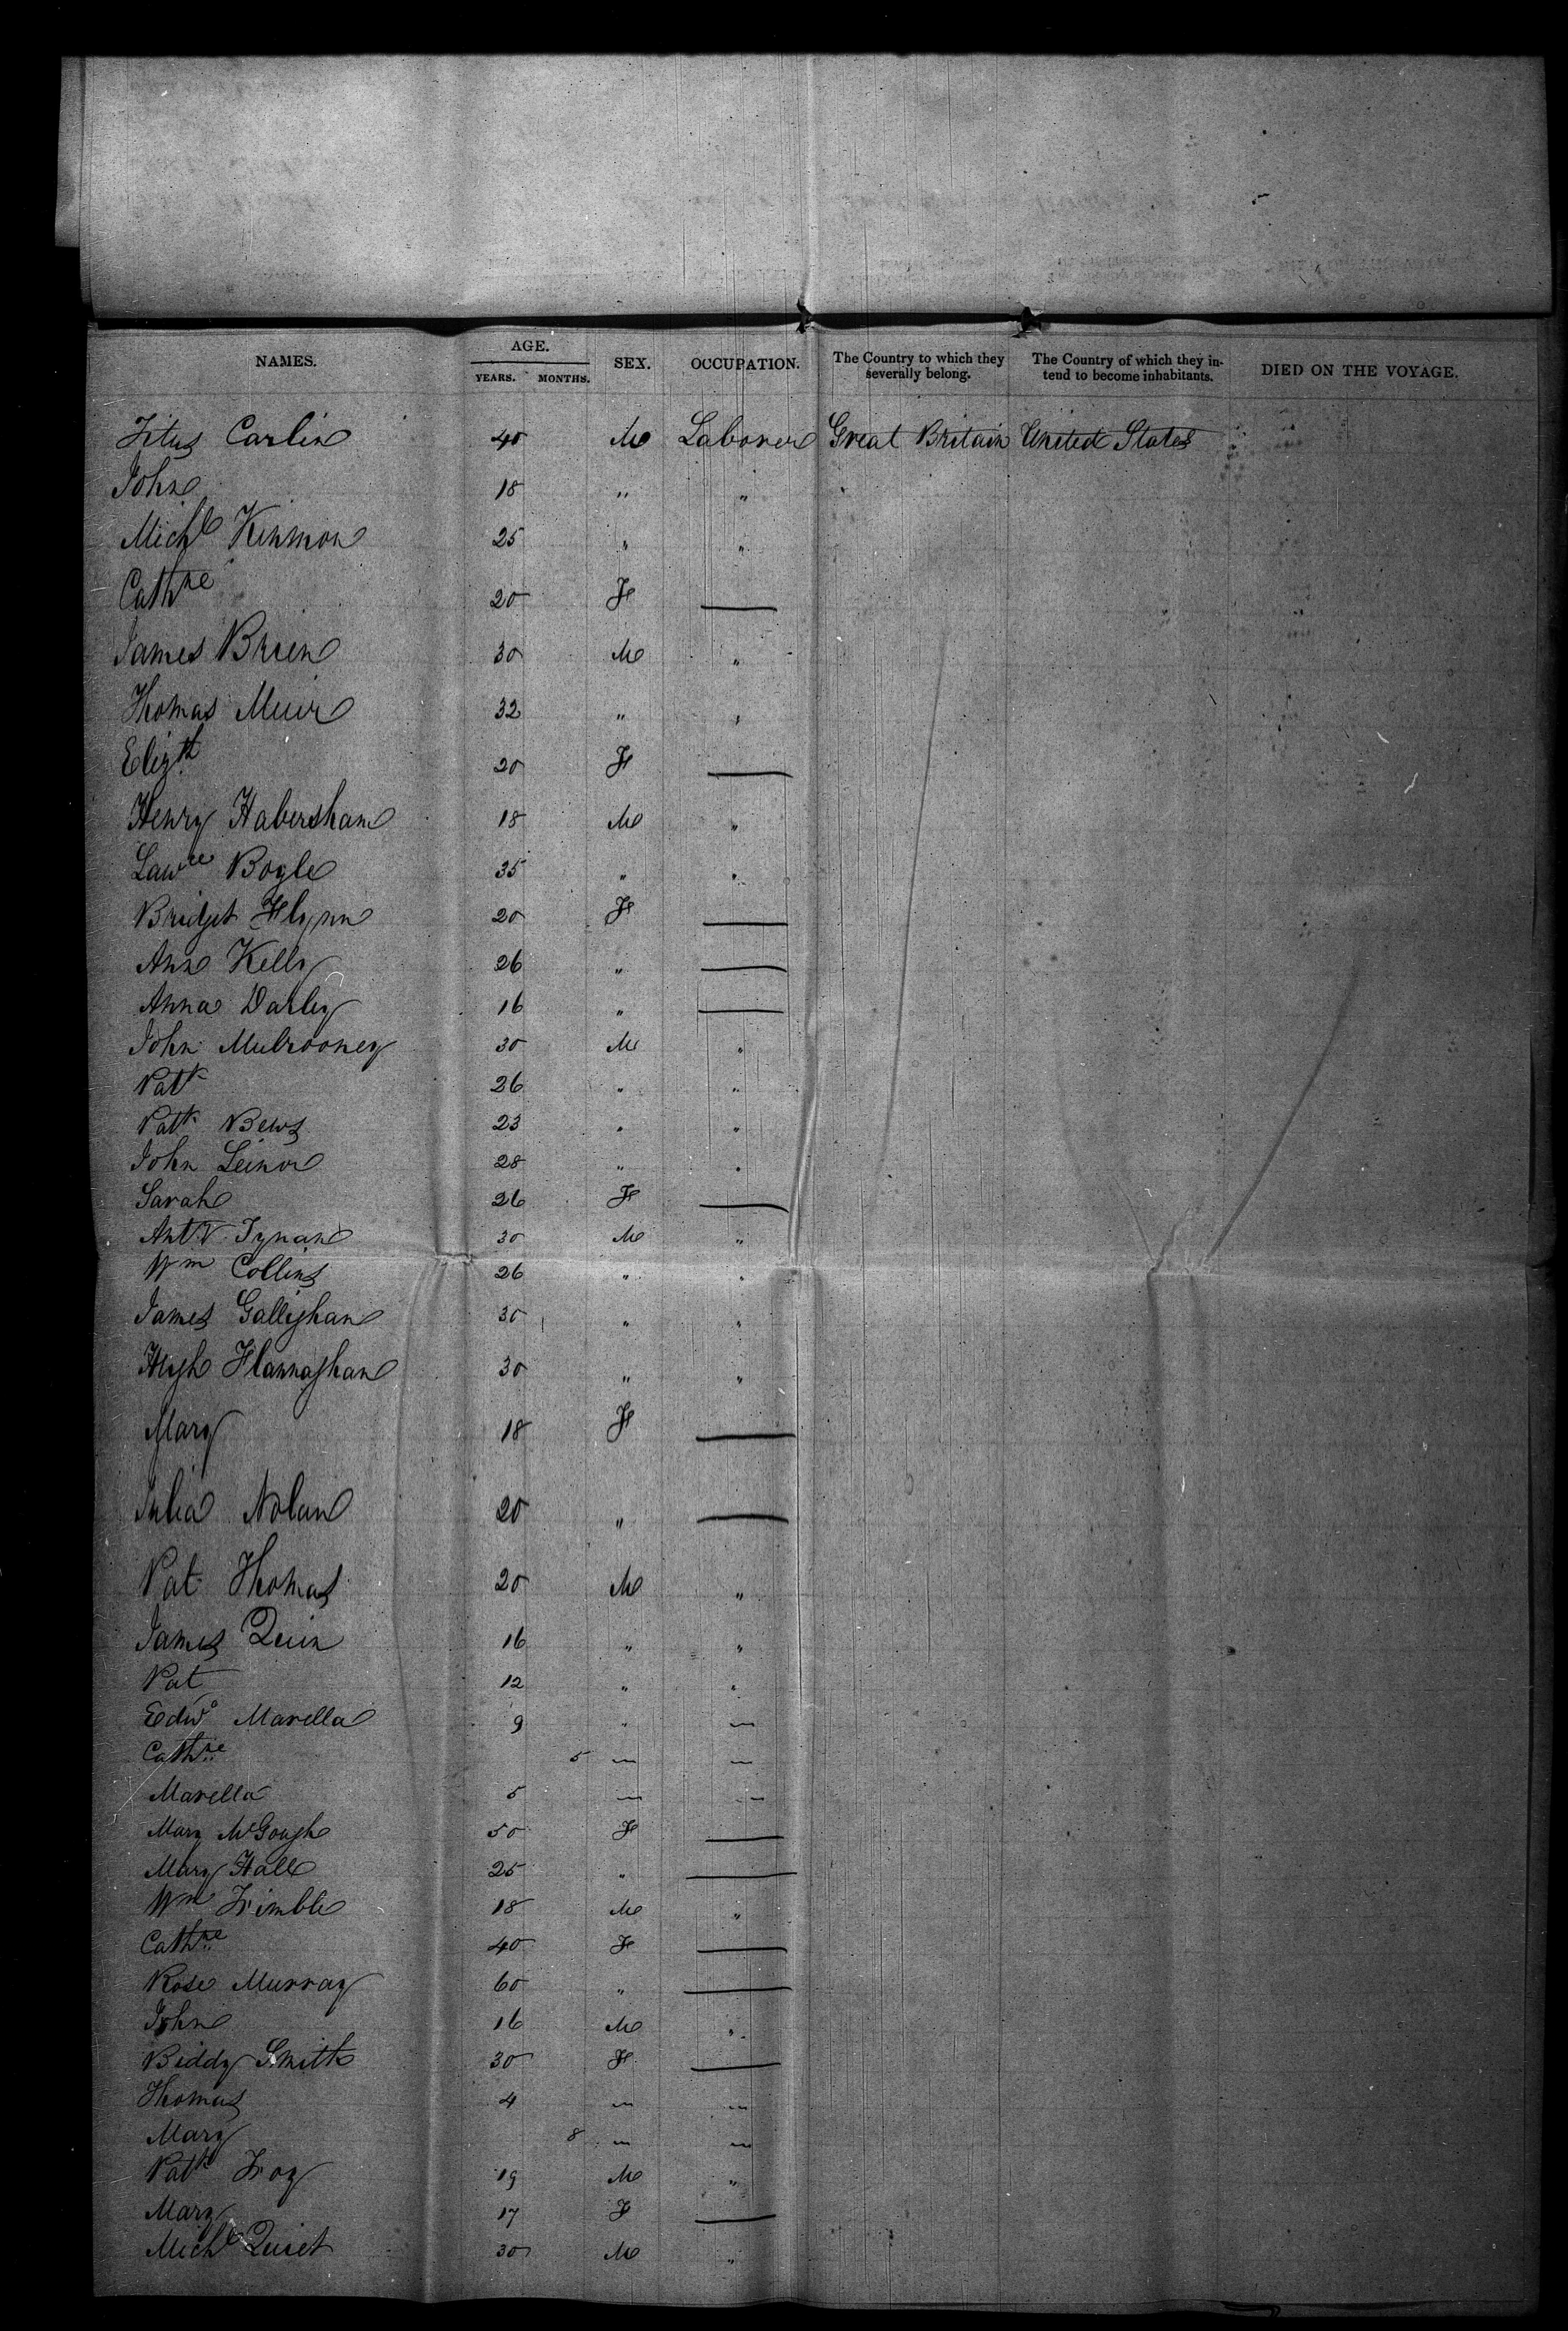 NAMES. AGE. YEARS. MONTHS. SEX. OCCUPATION. The Country to which they severally belong. The Country of which they intend to become inhabitants. DIED ON THE VOYAGE.
Titus Carlin 40 M Laborer Great Britain United States
John 18 " "
Michl Kinmon 25 " "
Cathne 20 F —
James Brien 30 M "
Thomas Muir 32 " "
Elizth 20 F —
Henry Habersham 18 M "
Lawce Bogle 35 " "
Bridget Flynn 20 F —
Ann Kelly 26 " —
Anna Darley 16 " —
John Mulrooney 30 M "
Patk 26 " "
Patk Bews 23 " "
John Leinor 28 " "
Sarah 26 F —
Anty Tynan 30 M "
Wm Collins 26 " "
James Gallighan 30 " "
Hugh Flannaghan 30 " "
Mary 18 F —
Julia Nolan 20 " —
Pat Thomas 20 M "
James Quin 16 " "
Pat 12 " "
Edwd Marella 9 " —
Cathne 5 — —
Marella 5 — —
Mary McGough 50 F —
Mary Hall 25 " —
Wm Trimble 18 M "
Cathne 40 F —
Rose Murray 60 " —
John 16 M "
Biddy Smith 30 F —
Thomas 4 — —
Mary 8 — —
Patk Troy 19 M "
Mary 17 F —
Michl Quiet 30 M "